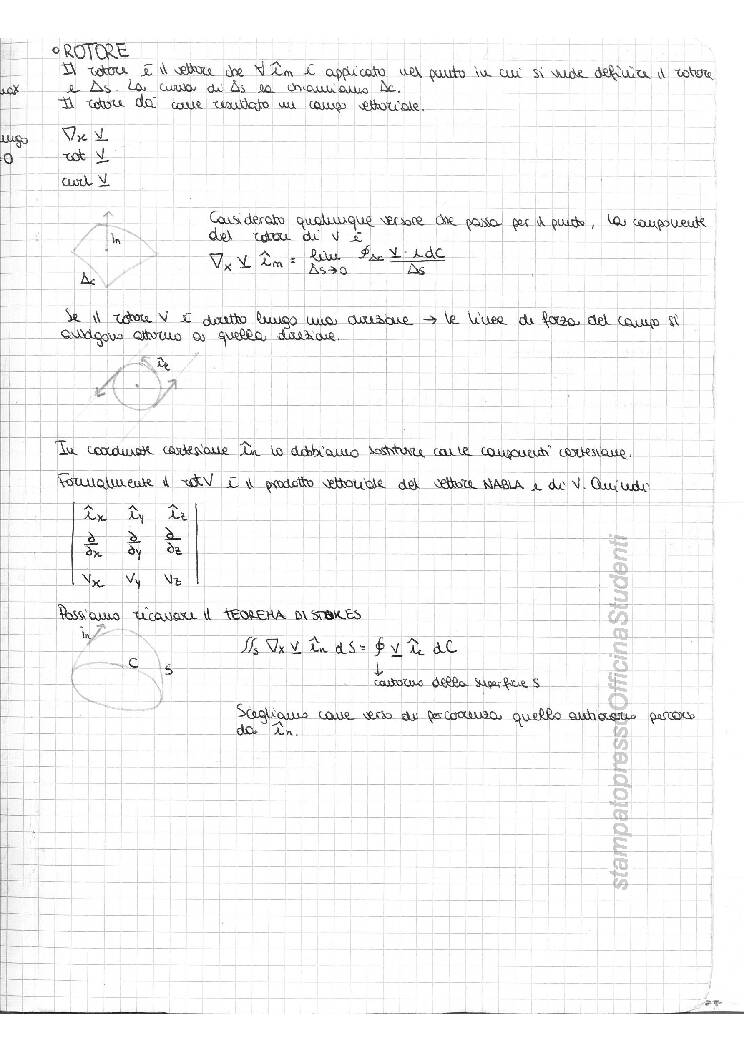 ° ROTORE
Il rotore è il vettore che ∀ î_n è applicato nel punto in cui si vuole definire il rotore
e Δs. La curva di Δs la chiamiamo Δc.
Il rotore dà come risultato un campo vettoriale.
∇x V
rot V
curl V
Considerato qualunque versore che passa per il punto, la componente
del rotore di V è
in
∇x V î_n = lim Δs→0 ∮Δc V · i dC / Δs
Δc
Se il rotore V è diretto lungo una direzione → le linee di forza del campo si
avvolgono attorno a quella direzione.
î_z
In coordinate cartesiane î_n lo dobbiamo sostituire con le componenti cartesiane.
Formalmente il rot V è il prodotto vettoriale del vettore NABLA e di V. Quindi
î_x î_y î_z
∂/∂x ∂/∂y ∂/∂z
V_x V_y V_z
Possiamo ricavare il TEOREMA DI STOKES
in
C S
∬_S ∇x V î_n dS = ∮ V î_c dC
↓
contorno della superficie S
Scegliamo come verso di percorrenza quello antiorario
da î_n.
stampatopressoOfficinaStudenti